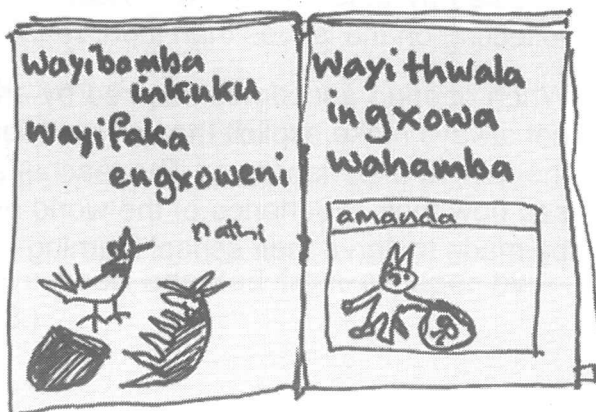 Wayibamba
inkuku
Wayifaka
engxoweni
nathi
Wayithwala
ingxowa
wahamba
amanda